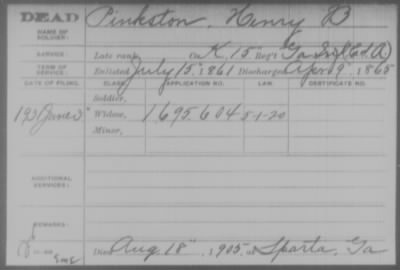 DEAD
NAME OF SOLDIER:
Pinkston, Henry B
SERVICE:
Late rank, Co K, 15" Reg't Ga Inf (C.S.A)
TERM OF SERVICE:
Enlisted July 15, 1861 Discharged Apr 9", 1865
DATE OF FILING. CLASS. APPLICATION NO. LAW. CERTIFICATE NO.
Soldier,
Widow, 1695604 5-1-20
Minor,
ADDITIONAL SERVICES:
REMARKS:
Died Aug 18", 1905, at Sparta, Ga